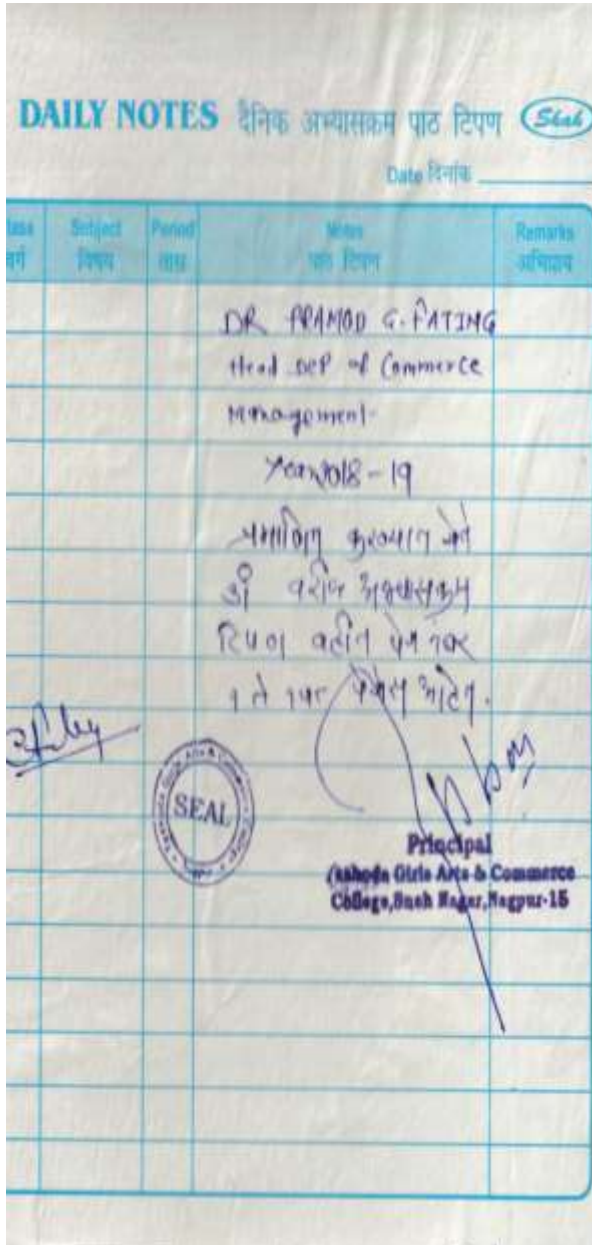 DAILY NOTES दैनिक अभ्यासक्रम पाठ टिपण Shah
Date दिनांक
Subject Period Notes Remarks
विषय तास पाठ टिपण अभिप्राय
DR PRAMOD G. FATING
Head DEP of Commerce
Management
Year 2018-19
प्रमाणित करण्यात येते
की वरील अभ्यासक्रम
टिपण वहीत पेज नंबर
१ ते
SEAL
Principal
Girls Arts & Commerce
College, Nagar, Nagpur-15